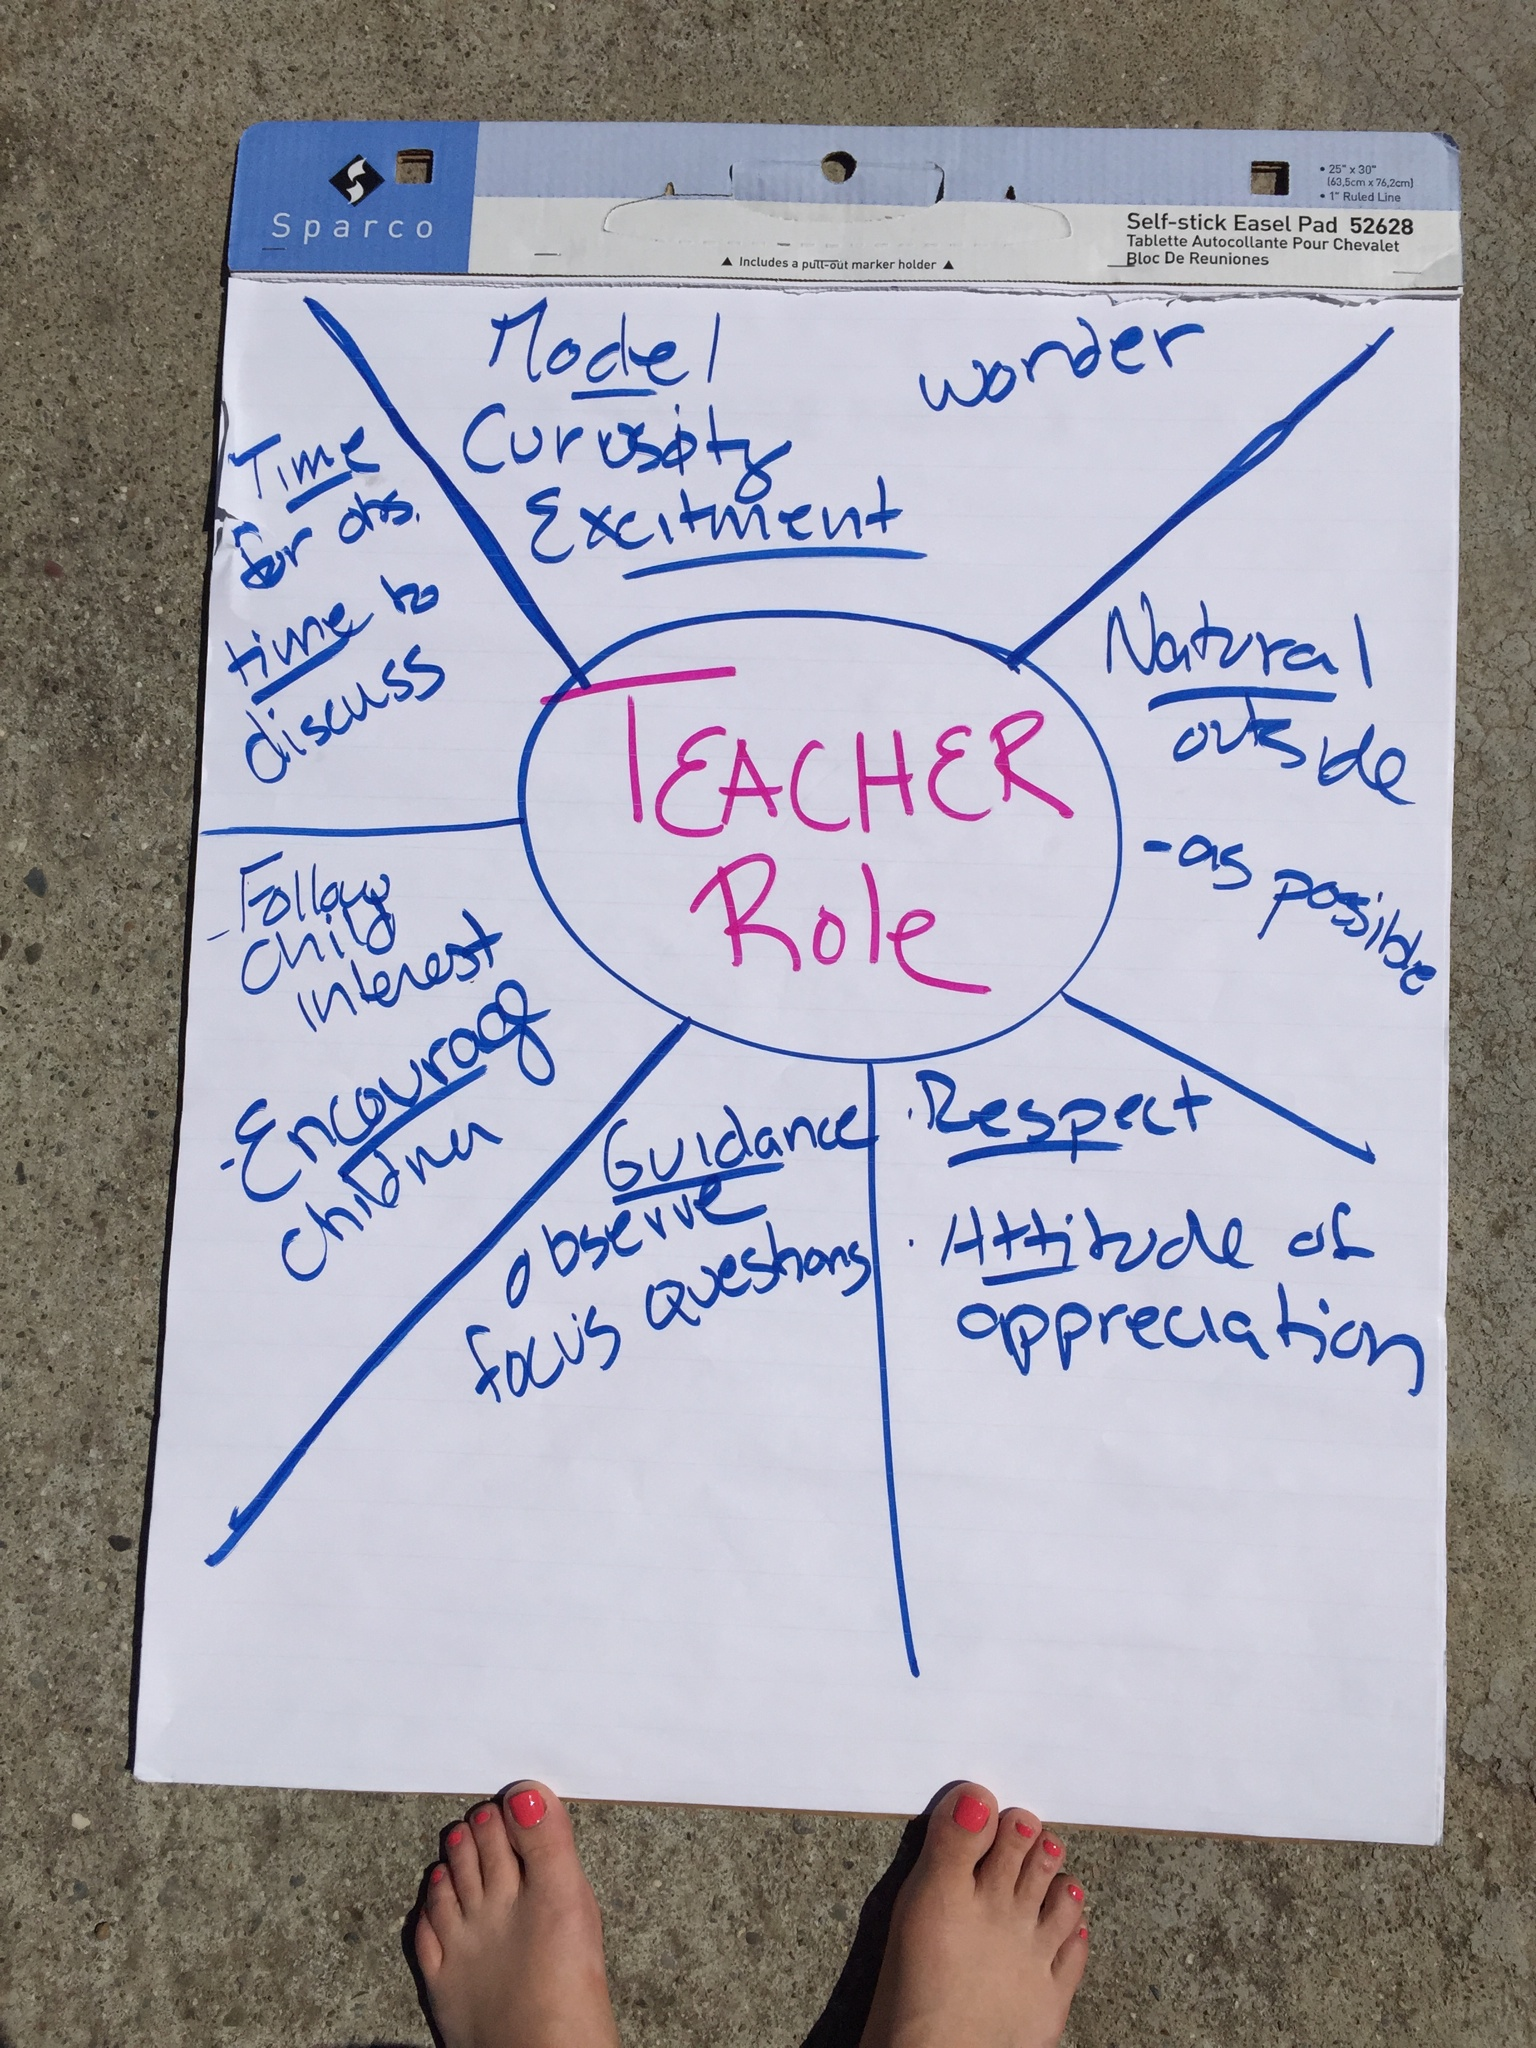 Sparco
• 25" x 30"
(63,5cm x 76,2cm)
• 1" Ruled Line
Self-stick Easel Pad 52628
Tablette Autocollante Pour Chevalet
Bloc De Reuniones
▲ Includes a pull-out marker holder ▲
Model
Curiosity
Excitment
wonder
Time
for obs.
time to
discuss
Natural
outside
- as possible
TEACHER
Role
- Follow
child
interest
- Encourage
children
Guidance
observe
focus questions
· Respect
· Attitude of
appreciation